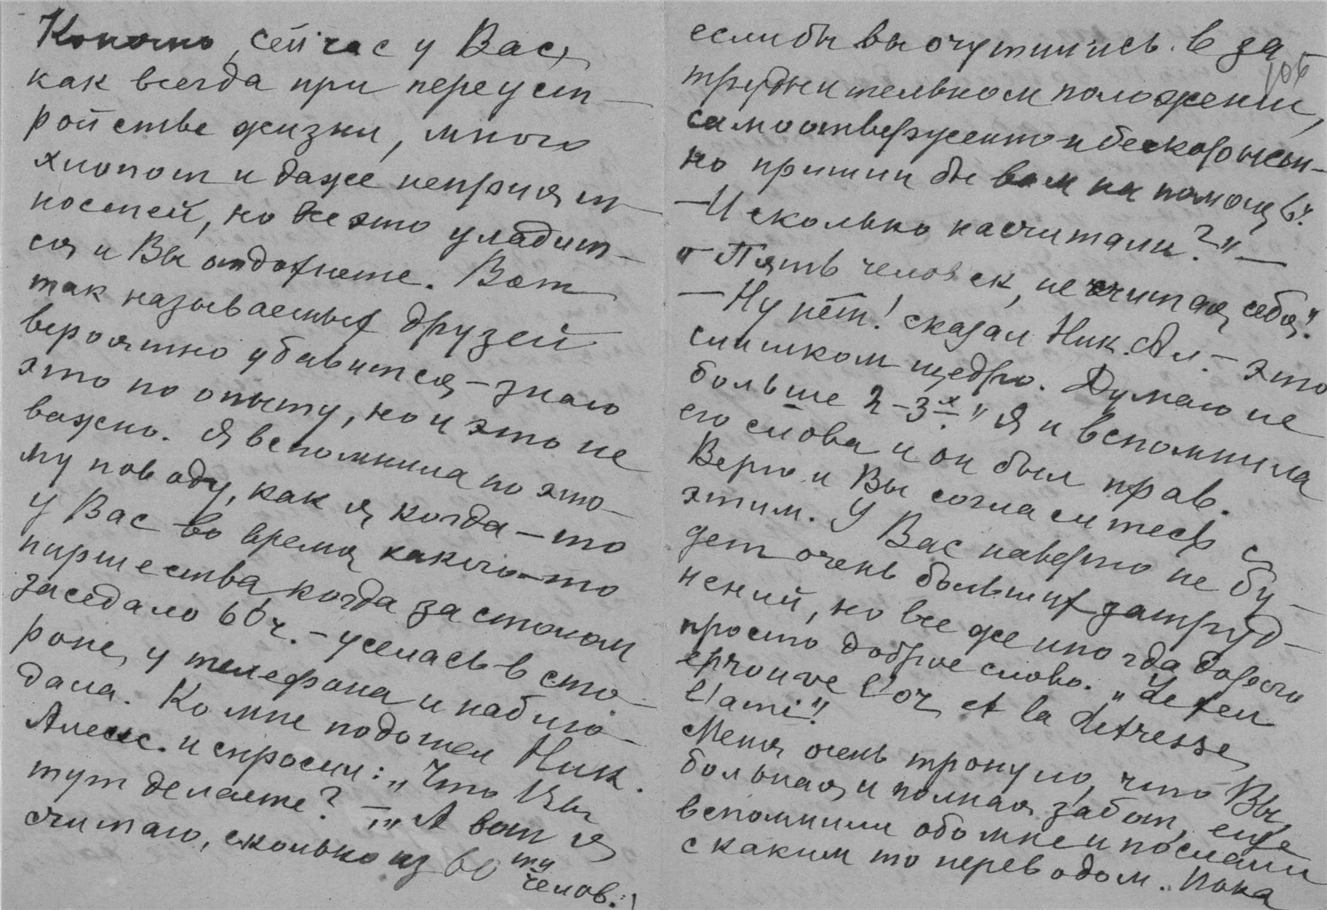 Конечно, сейчас у Вас,
как всегда при переуст-
ройстве жизни, много
хлопот и даже неприят-
ностей, но все это уладит-
ся и Вы отдохнете. Вот
так называемых друзей
вероятно убавится – знаю
это по опыту, но и это не
важно. Я вспомнила по это-
му поводу, как я когда-то
у Вас во время какого-то
пиршества когда за столом
заседало 60 ч. – уселась в сто-
роне, у телефона и наблю-
дала. Ко мне подошел Ник.
Алекс. и спросил: „Что Вы
тут делаете? – „А вот я
считаю, сколько из 60 ти
челов.
если бы вы очутились в за-
106
труднительном положении,
самоотверженно и бескорыст-
но пришли бы вам на помощь
– И сколько насчитали?" –
„– Пять человек, не считая себя".
– Ну нет! сказал Ник. Ал. – это
слишком щедро. Думаю не
больше 2-3х" Я и вспомнила
его слова и он был прав.
Верно и Вы согласитесь с
этим. У Вас наверно не бу-
дет очень больших затруд-
нений, но все же иногда дорого
просто доброе слово. „Le feu
éprouve l'or, et la détresse
l'ami"!
Меня очень тронуло, что Вы,
больная и полная забот, еще
вспомнили обо мне и послали
с каким то переводом. Пока